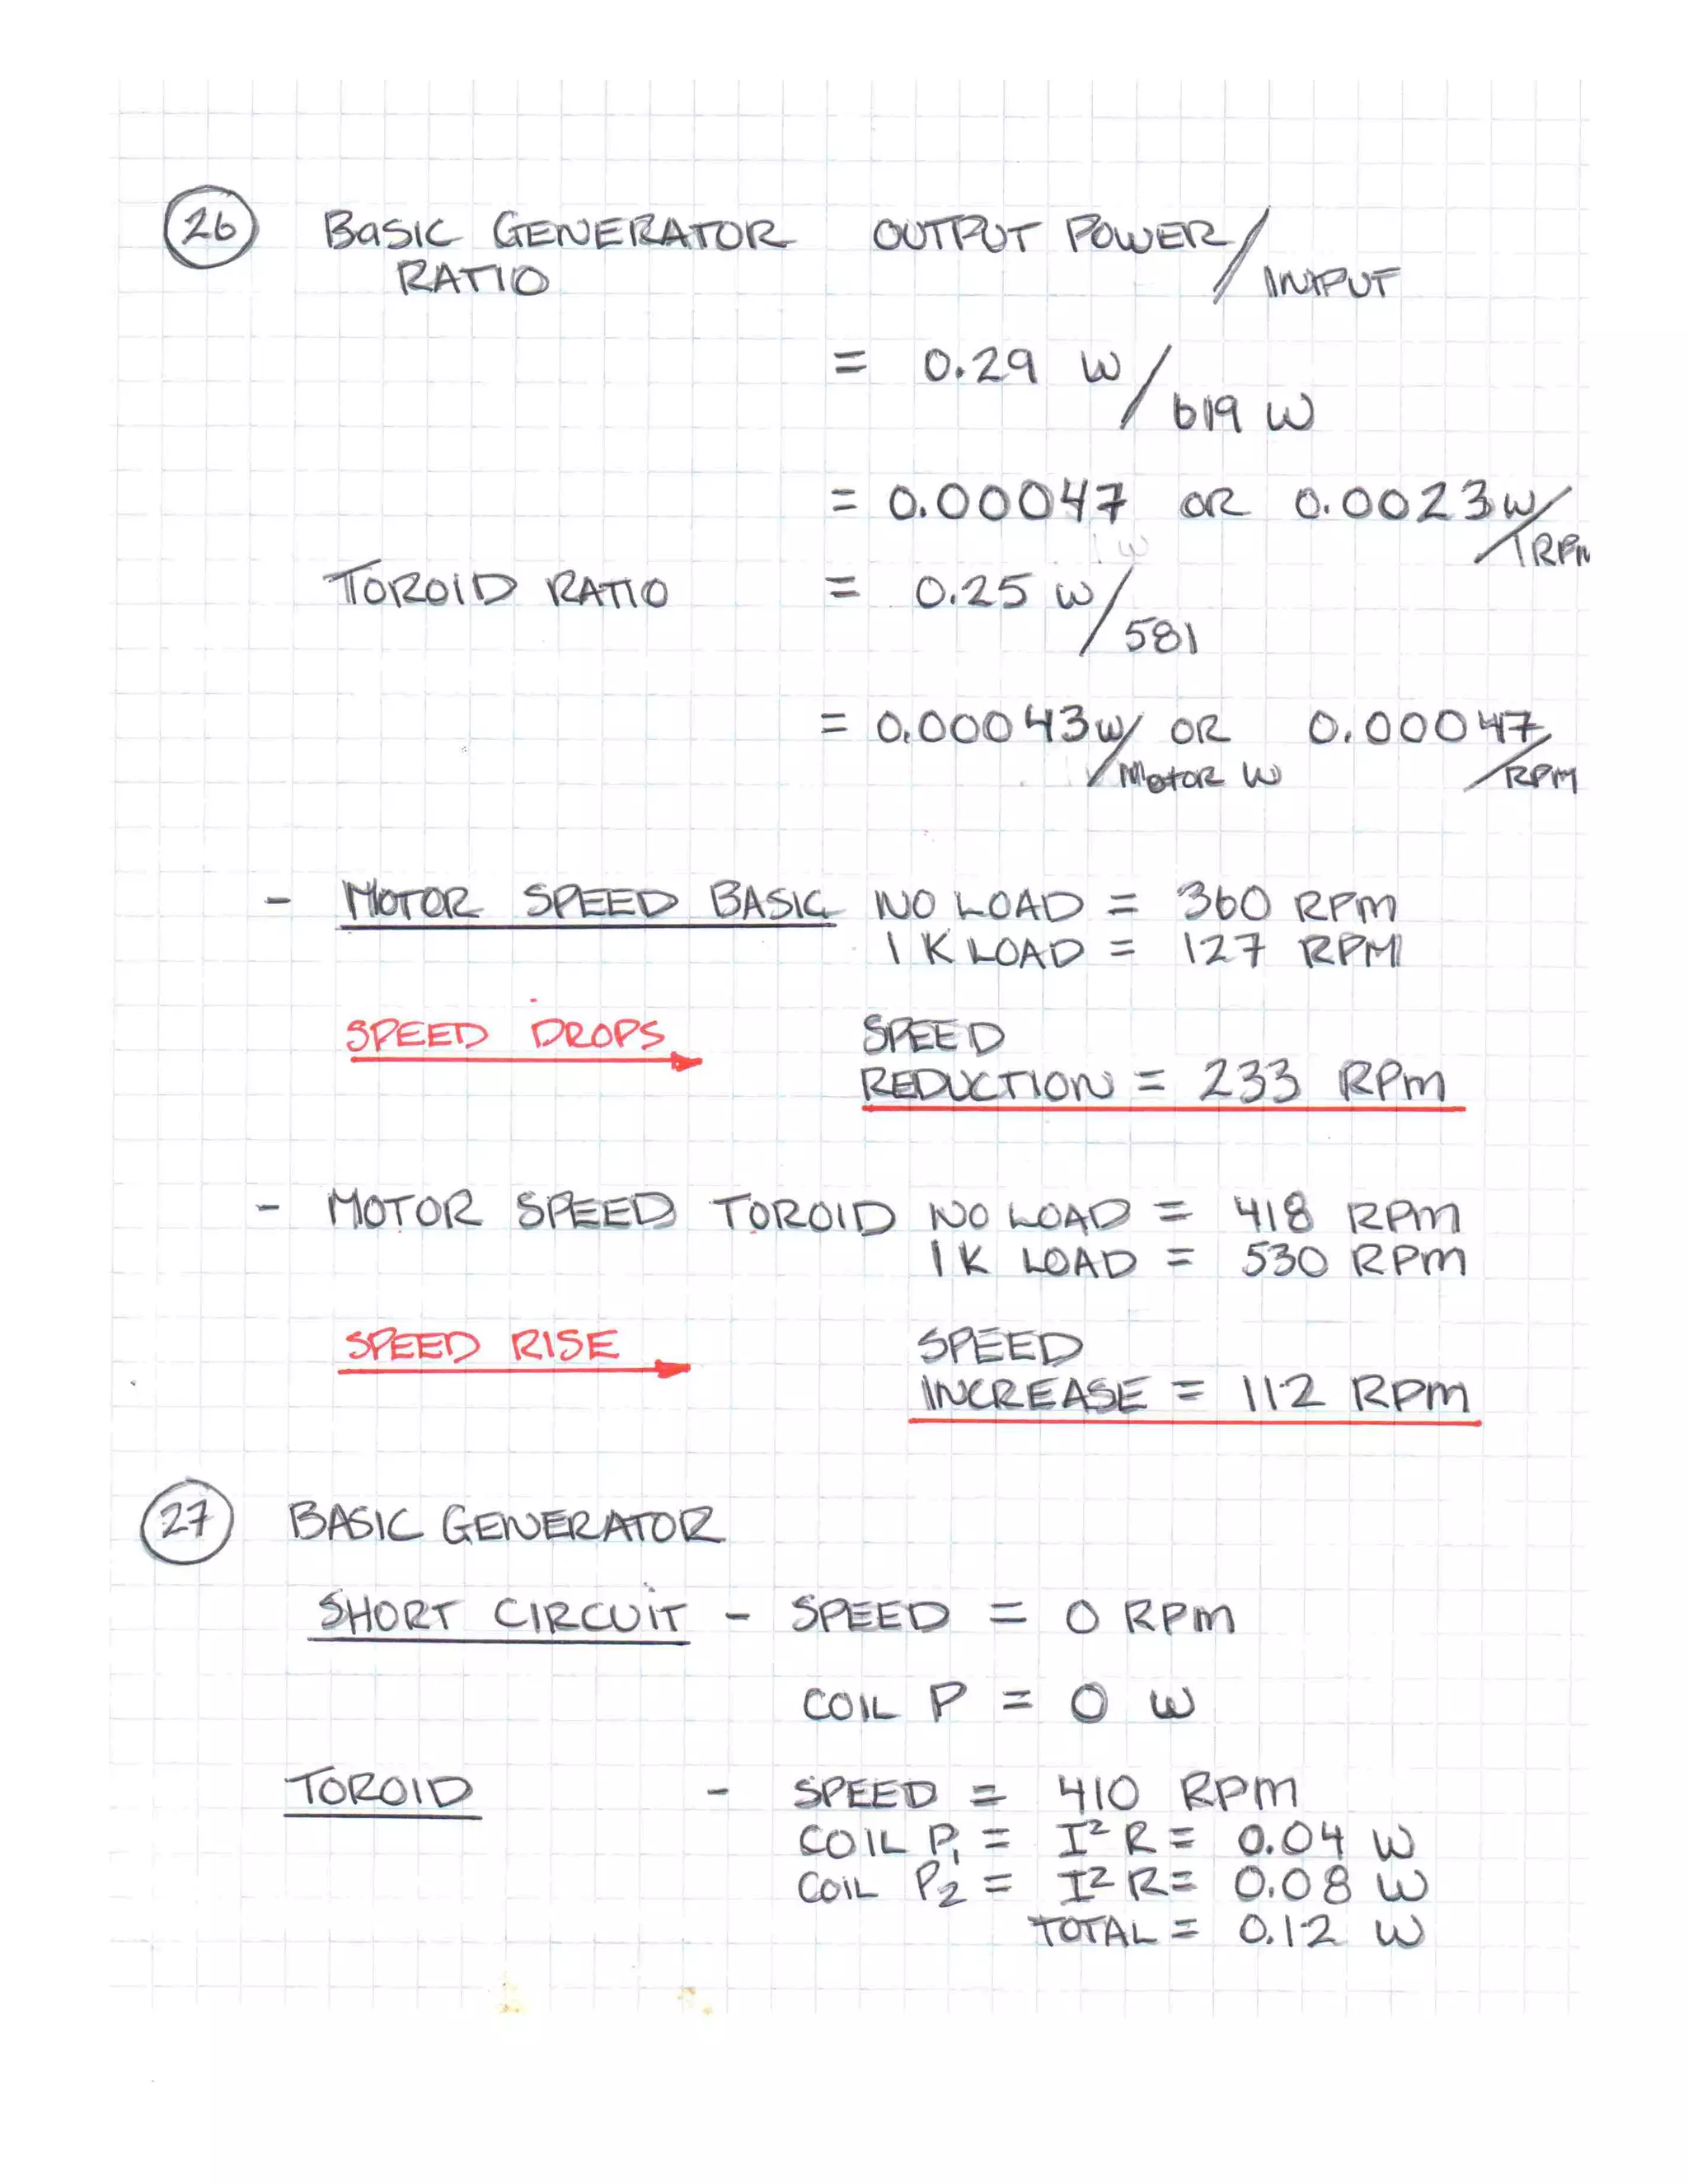 26 BaSIC GENERATOR OUTPUT POWER/
RATIO INPUT
= 0.29 W/
619 W
= 0.00047 OR 0.0023 W/
RPM
TOROID RATIO = 0.25 W/
581
= 0.00043 W/ OR 0.00047/
MotoR W RPM
- MOTOR SPEED BASIC NO LOAD = 360 RPM
1 K LOAD = 127 RPM
SPEED DROPS SPEED
REDUCTION = 233 RPM
- MOTOR SPEED TOROID NO LOAD = 418 RPM
1K LOAD = 530 RPM
SPEED RISE SPEED
INCREASE = 112 RPM
27 BASIC GENERATOR
SHORT CIRCUiT - SPEED = 0 RPM
COIL P = 0 W
TOROID - SPEED = 410 RPM
COIL P₁ = I² R = 0.04 W
COiL P₂ = I² R = 0.08 W
TOTAL = 0.12 W